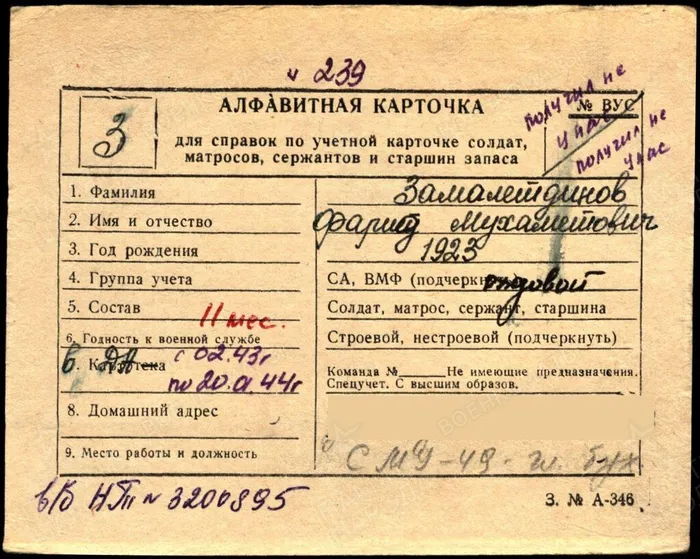 ч 239
З
АЛФАВИТНАЯ КАРТОЧКА
№ ВУС
для справок по учетной карточке солдат,
матросов, сержантов и старшин запаса
получил не
у нас
получил не
у нас
1. Фамилия
Замалетдинов
2. Имя и отчество
Фарид Мухаметович
3. Год рождения
1923
4. Группа учета
СА, ВМФ (подчеркнуть)
рядовой
5. Состав
11 мес.
Солдат, матрос, сержант, старшина
6. Годность к военной службе
Строевой, нестроевой (подчеркнуть)
7. Картотека
в ДА
с 02.43г
по 20.01.44г
Команда № Не имеющие предназначения.
Спецучет. С высшим образов.
8. Домашний адрес
9. Место работы и должность
СМУ-49 - гл. бух
в/б НТ № 3200895
З. № А-346